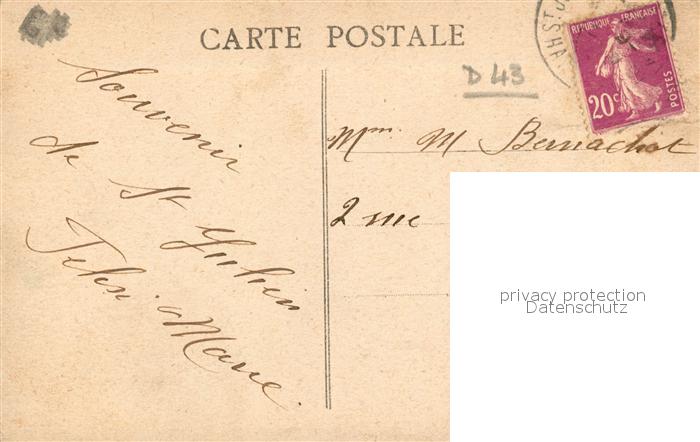 CARTE POSTALE
D 43
REPUBLIQUE FRANÇAISE
20c
POSTES
Souvenir
de St Julien
Marie
Mm M Bernachot
2 rue
privacy protection
Datenschutz